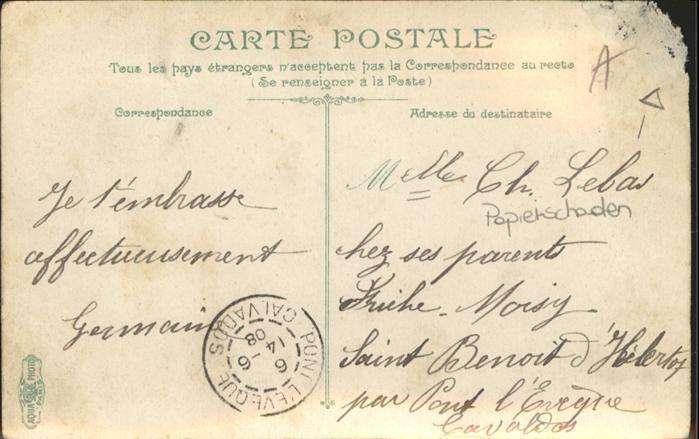 CARTE POSTALE
Tous les pays étrangers n'acceptent pas la Correspondance au recto
(Se renseigner à la Poste)
Correspondance
Je t'embrasse
affectueusement
Germain
PONT-L'EVEQUE CALVADOS
6 - 6
14
08
AQUA PHOTO
PARIS
Adresse du destinataire
A
Melle Ch. Lebas
Papierschaden
chez ses parents
Friche-Moisy
Saint Benoit d'Hébertot
par Pont l'Evêque
Cavaldos